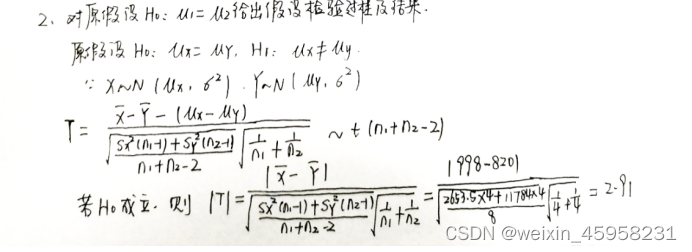 2、对原假设 H₀: μ₁=μ₂给出假设检验过程及结果.
原假设 H₀: μx=μY, H₁: μx≠μy.
∵ X~N(μx, σ²). Y~N(μy, σ²)
T = (X̄-Ȳ-(μx-μy)) / (√((Sx²(n₁-1)+Sy²(n₂-1))/(n₁+n₂-2)) √(1/n₁+1/n₂)) ~ t(n₁+n₂-2)
若H₀成立. 则 |T| = |X̄-Ȳ| / (√((Sx²(n₁-1)+Sy²(n₂-1))/(n₁+n₂-2)) √(1/n₁+1/n₂)) = |998-820| / (√((2653.5×4+11784×4)/8) √(1/4+1/4)) = 2.91
CSDN @weixin_45958231